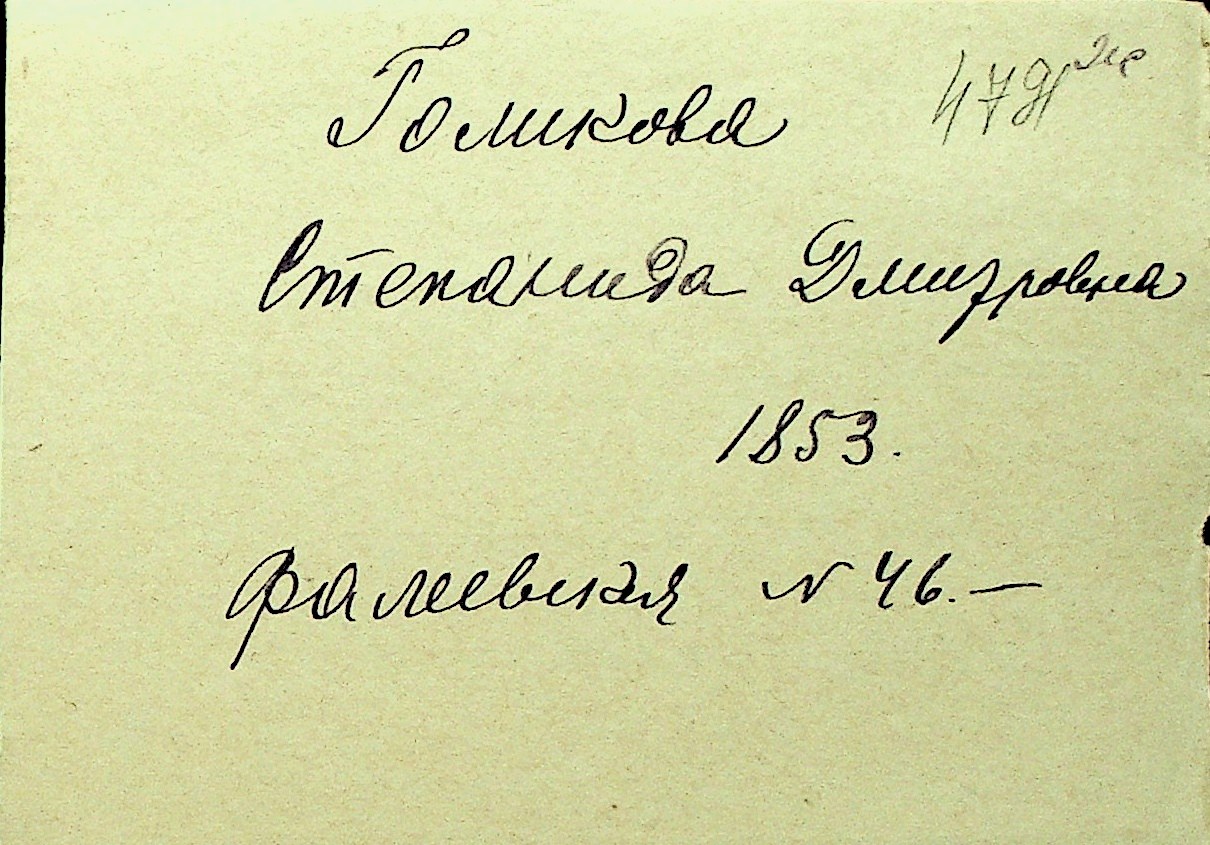 Голикова
Степанида Дмитровна
1853.
Фалеевская N 46.—